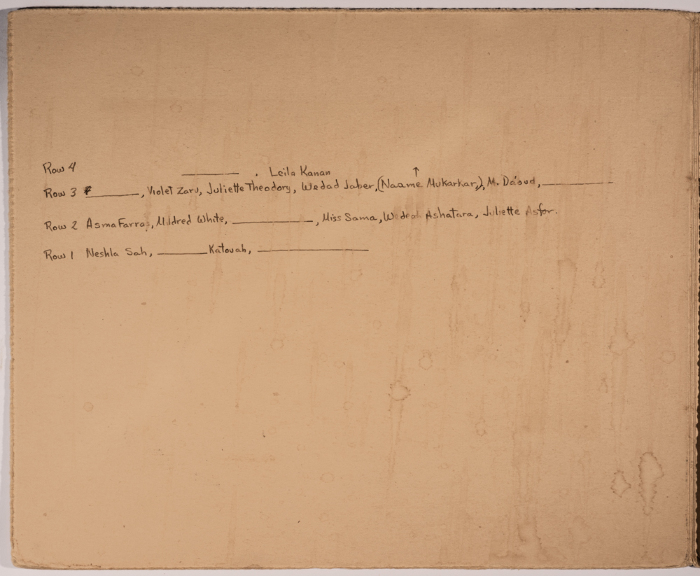 Row 4 ________ . Leila Kanan
Row 3 F________, Violet Zaru, Juliette Theodory, Wedad Jaber, (Naame Mukarkar), M. Da'oud, ________
Row 2 Asma Farraj, Mildred White, ________, Miss Sama, Wedad Ashatara, Juliette Asfor.
Row 1 Neshla Sah, ________ Katouah, ________